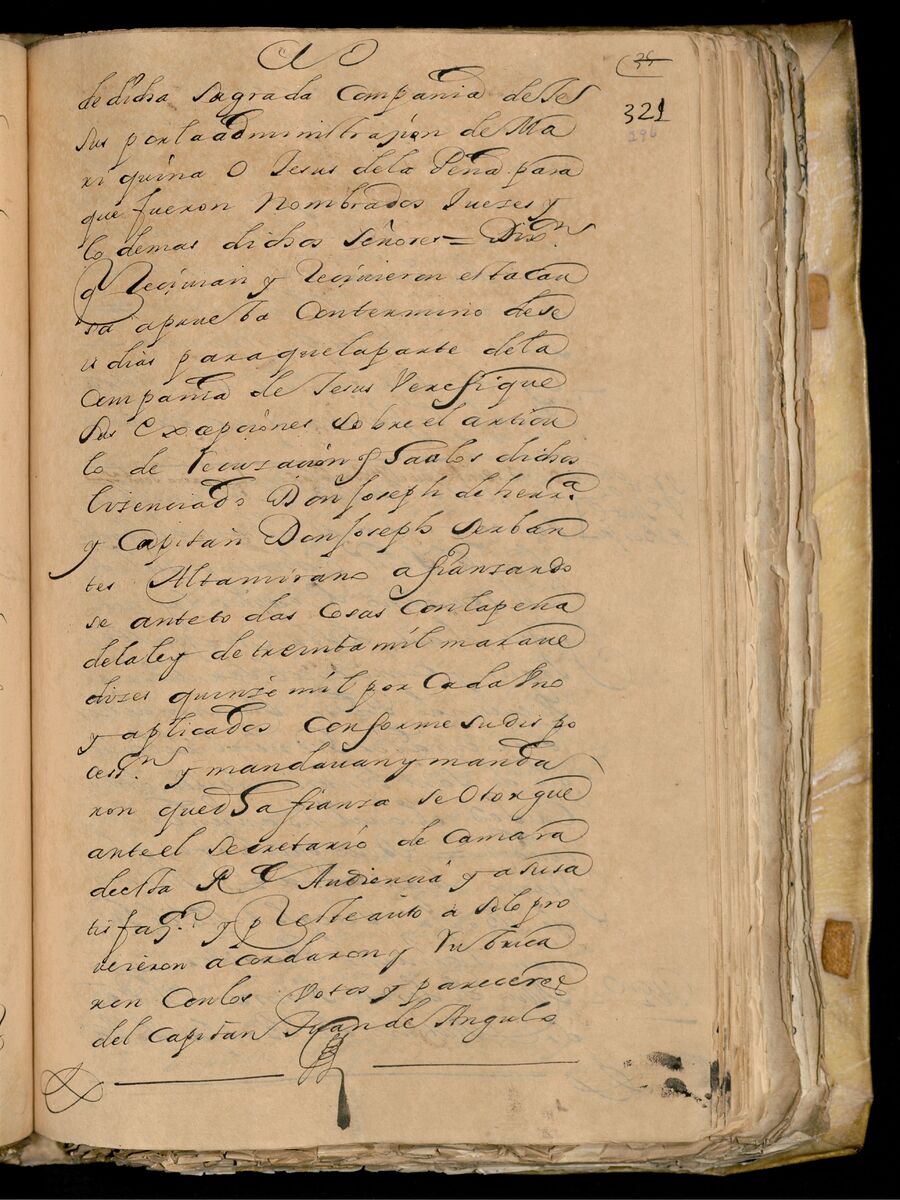 35
321
196
de dicha sagrada Compania de Jes
sus por la administrasion de Ma
ri quina O Jesus de la Pena para
que fueron Nombrados Jueses y
lo demas dichos señores = Dixn.
q Recivian y Recivieron esta cau
sa aprueba Contermino dese
is dias para quelaparte dela
Compania de Jesus Verefique
sus Excepciones sobre el articu
lo de recusacion y
Lisenciado Don Joseph de herra.
y Capitan Don Joseph Serban
tes Altamirano afianzando
se anteto das Cosas Conlapena
delaley de treinta mil marave
dises quinse mil por Cada Vno
y aplicados Conforme sudispo
cessn. y mandavan y manda
ron que fianza se Otorgue
ante el secretario de Camara
de esta Rl Audiencia y a susa
tisfaon. y p este auto a silo pro
veieron acordaron y Rubrica
ron Conlos Votos y pareceres
del Capitan Juan de Angulo